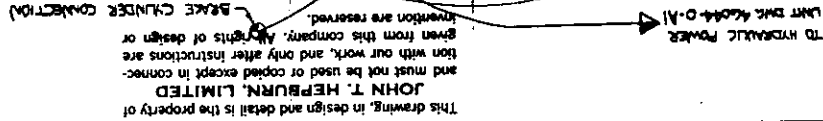 This drawing, in design and detail is the property of
JOHN T. HEPBURN, LIMITED
and must not be used or copied except in connec-
tion with our work, and only after instructions are
given from this company. All rights of design or
invention are reserved.
TO HYDRAULIC POWER
UNIT DWG 46044-D-A1
BRAKE CYLINDER CONNECTION)